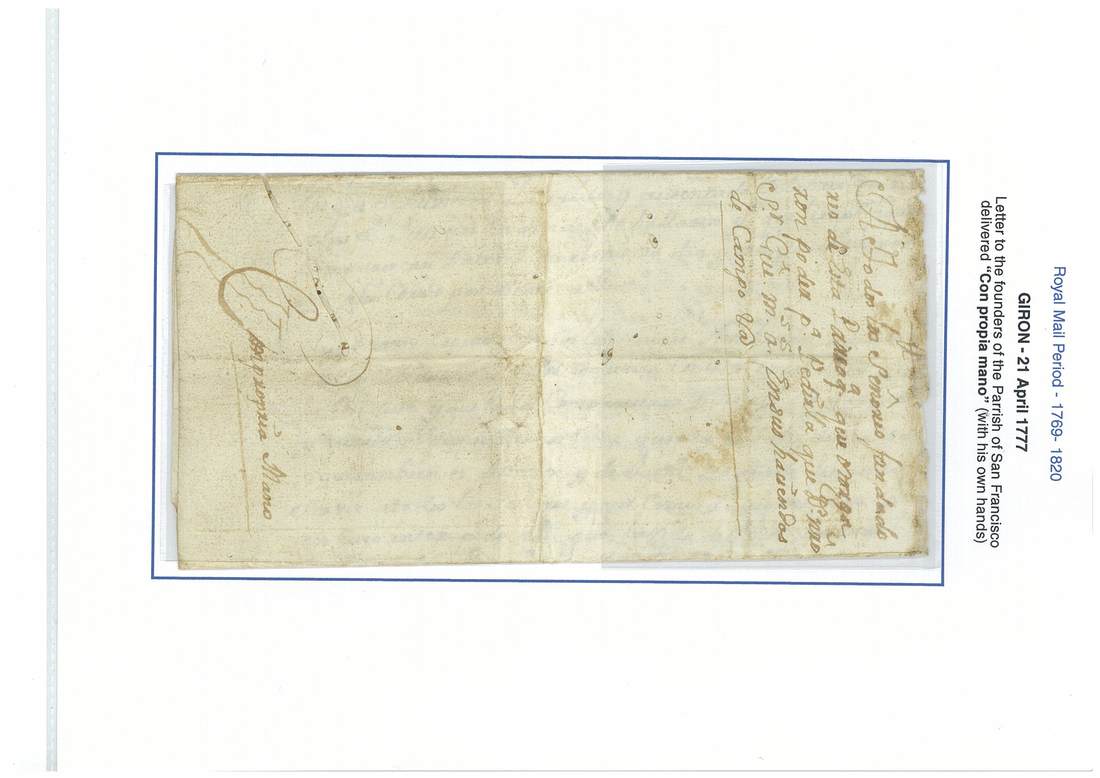 Royal Mail Period - 1769- 1820
GIRON - 21 April 1777
Letter to the founders of the Parrish of San Francisco
delivered “Con propia mano” (with his own hands)
A Todos los Senores fundado
res de esta que
con poder pª Pedila que
Que. m. a. En sus haciendas
de Campo Rdo
Con propria Mano